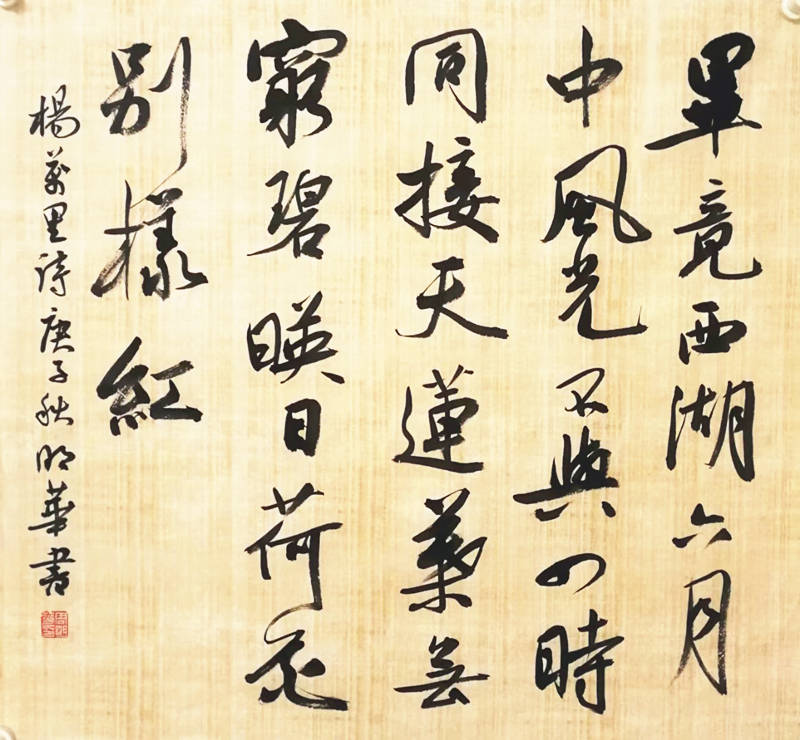 畢竟西湖六月
中風光不與四時
同接天蓮葉無
窮碧暎日荷花
別樣紅
楊萬里詩庚子秋明華書